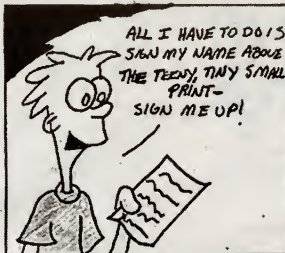 ALL I HAVE TO DO IS
SIGN MY NAME ABOVE
THE TEENY, TINY SMALL
PRINT-
SIGN ME UP!